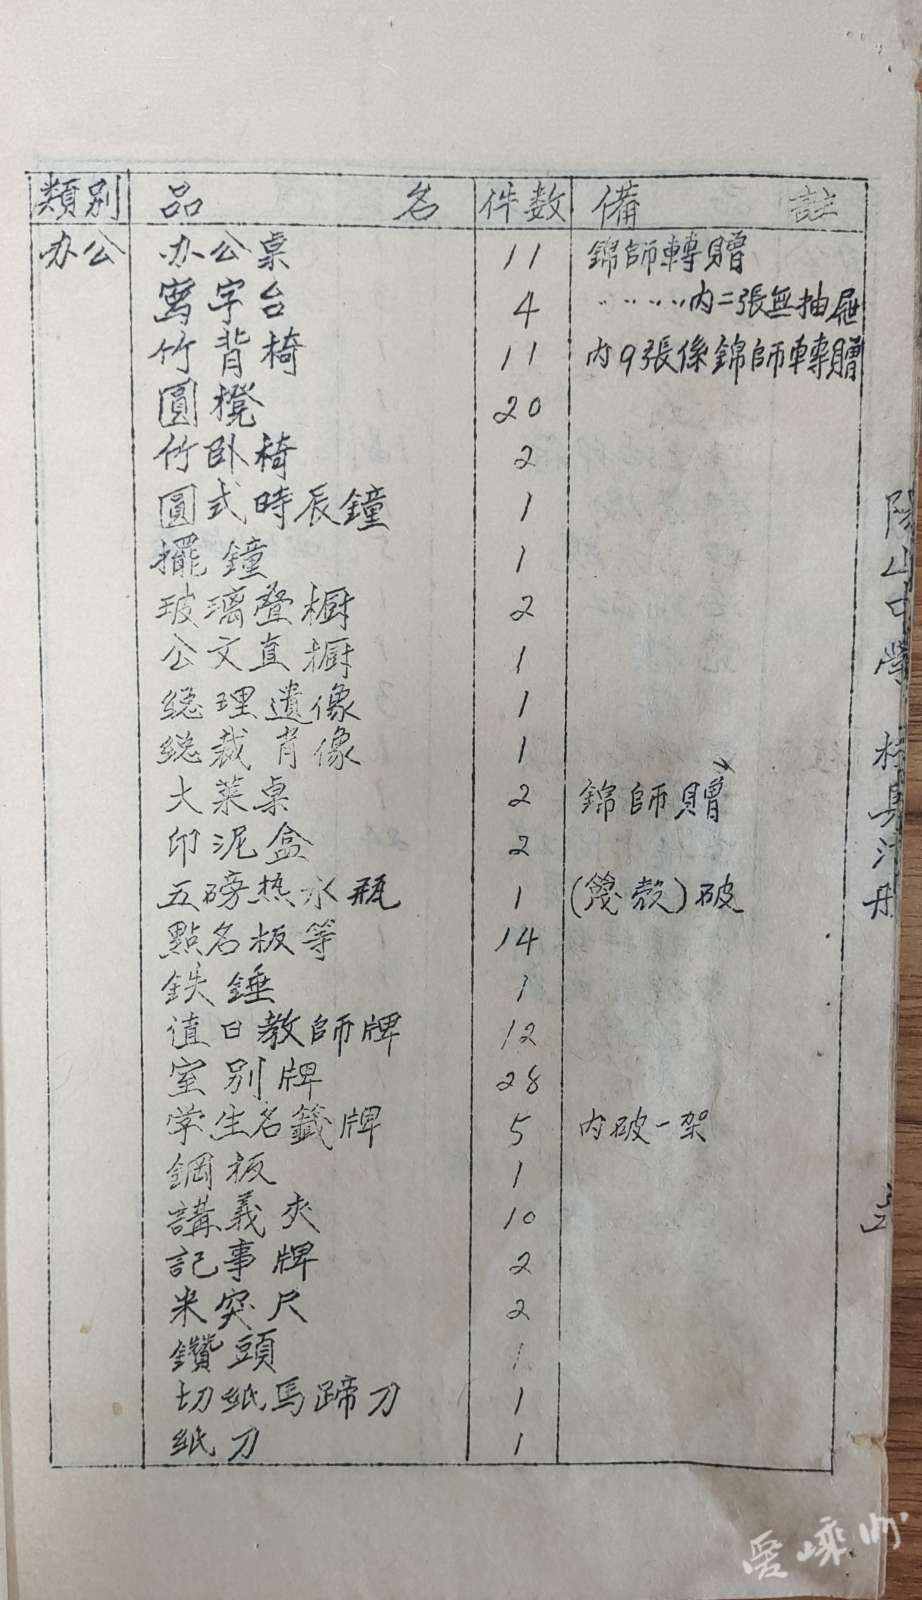 類別 品名 件数 備註
办公 办公桌 11 錦師轉贈
寫字台 4 〃〃〃〃内二張無抽屉
竹背椅 11 内9張係錦師轉贈
圓櫈 20
竹卧椅 2
圓式時辰鐘 1
擺鐘 1
玻璃疊橱 2
公文直橱 1
総理遺像 1
総裁肖像 1
大菜桌 2 錦師贈
印泥盒 2
五磅热水瓶 1 (篾殼)破
點名板等 14
鉄錘 1
值日教師牌 12
室别牌 28
学生名籤牌 5 内破一架
鋼板 1
講義夾 10
記事牌 2
米突尺 2
鑽頭 1
切纸馬蹄刀 1
纸刀 1
陽山中學 校具
愛嵊州